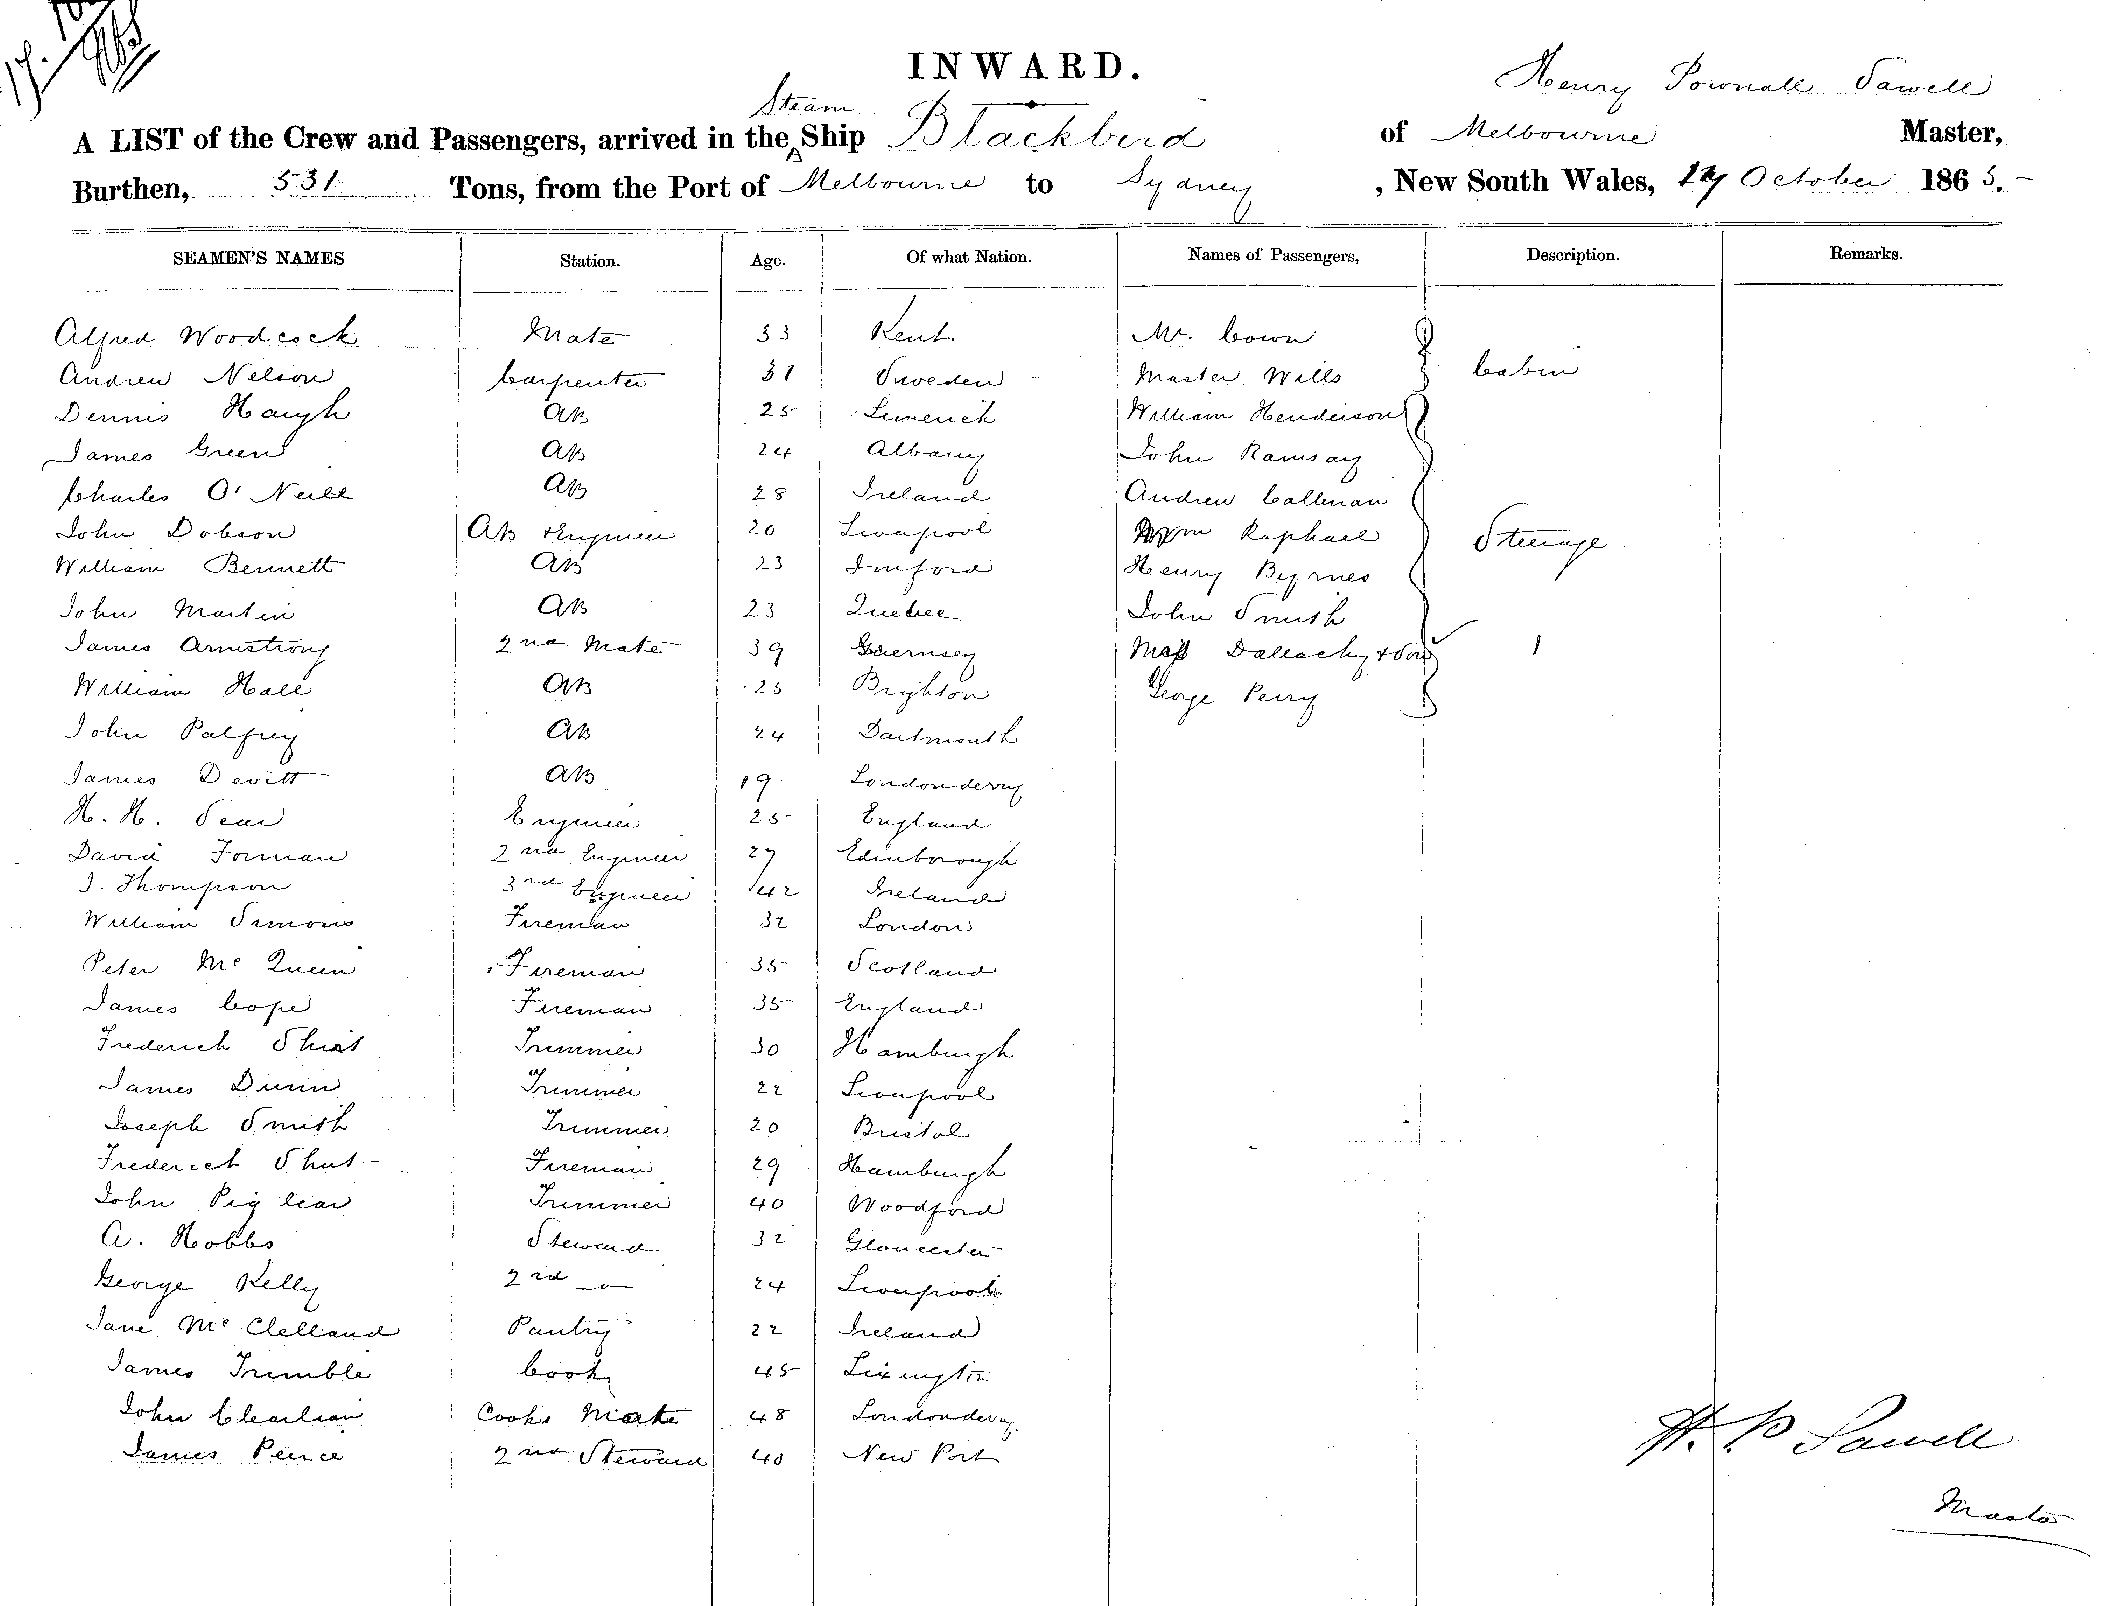 INWARD.
Henry Pownall Sawell
Steam
A LIST of the Crew and Passengers, arrived in the Ship Blackbird of Melbourne Master,
Burthen, 531 Tons, from the Port of Melbourne to Sydney, New South Wales, October 1865.
SEAMEN'S NAMES Station. Age. Of what Nation. Names of Passengers, Description. Remarks.
Alfred Woodcock Mate 33 Kent Mr. Cown
Andrew Nelson Carpenter 31 Sweden Master Wills Cabin
Dennis Haugh AB 25 Limerick William Henderson
James Green AB 24 Albany John Ramsay
Charles O'Neill AB 28 Ireland Andrew Callman
John Dobson AB 20 Liverpool Raphael Steerage
William Bennett AB 23 Henry Byrnes
John Martin AB 23 Quebec John Smith
James Armstrong 2nd Mate 39 Guernsey Dallachy & Son 1
William Hall AB 25 Brighton George Perry
John Palfrey AB 24 Dartmouth
James Devitt AB 19 Londonderry
H. H. Engineer 25 England
David Forman 2nd Engineer 27 Edinborough
J. Thompson 3rd Engineer 42 Ireland
William Simons Fireman 32 London
Peter McQueen Fireman 35 Scotland
James Cope Fireman 35 England
Frederick Trimmer 30 Hamburgh
James Dunn Trimmer 22 Liverpool
Joseph Smith Trimmer 20 Bristol
Frederick Shut Fireman 29 Hamburgh
John Trimmer 40 Woodford
A. Hobbs Steward 32 Gloucester
George Kelly 2nd -o- 24 Liverpool
Jane McClelland Pantry 22 Ireland
James Trimble Cook 45 Lixington
John Cooks Mate 48 Londonderry
James Peirce 2nd Steward 40 New Port
H. P Sawell
Master